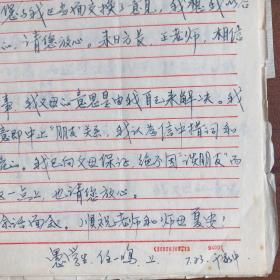 您与我已当面交换了意见,我想我以后
心,请您放心。来日方长,王老师,相信
事,我父母的意思是由我自己来解决。我
意即中止“朋友”关系,我认为信中措词和
虑。我已向父母保证,绝不因“谈朋友”而
这一点上,也请您放心。
余话面叙。顺祝老师和师母夏安!
愚学生 任一鸣 上 7.23.